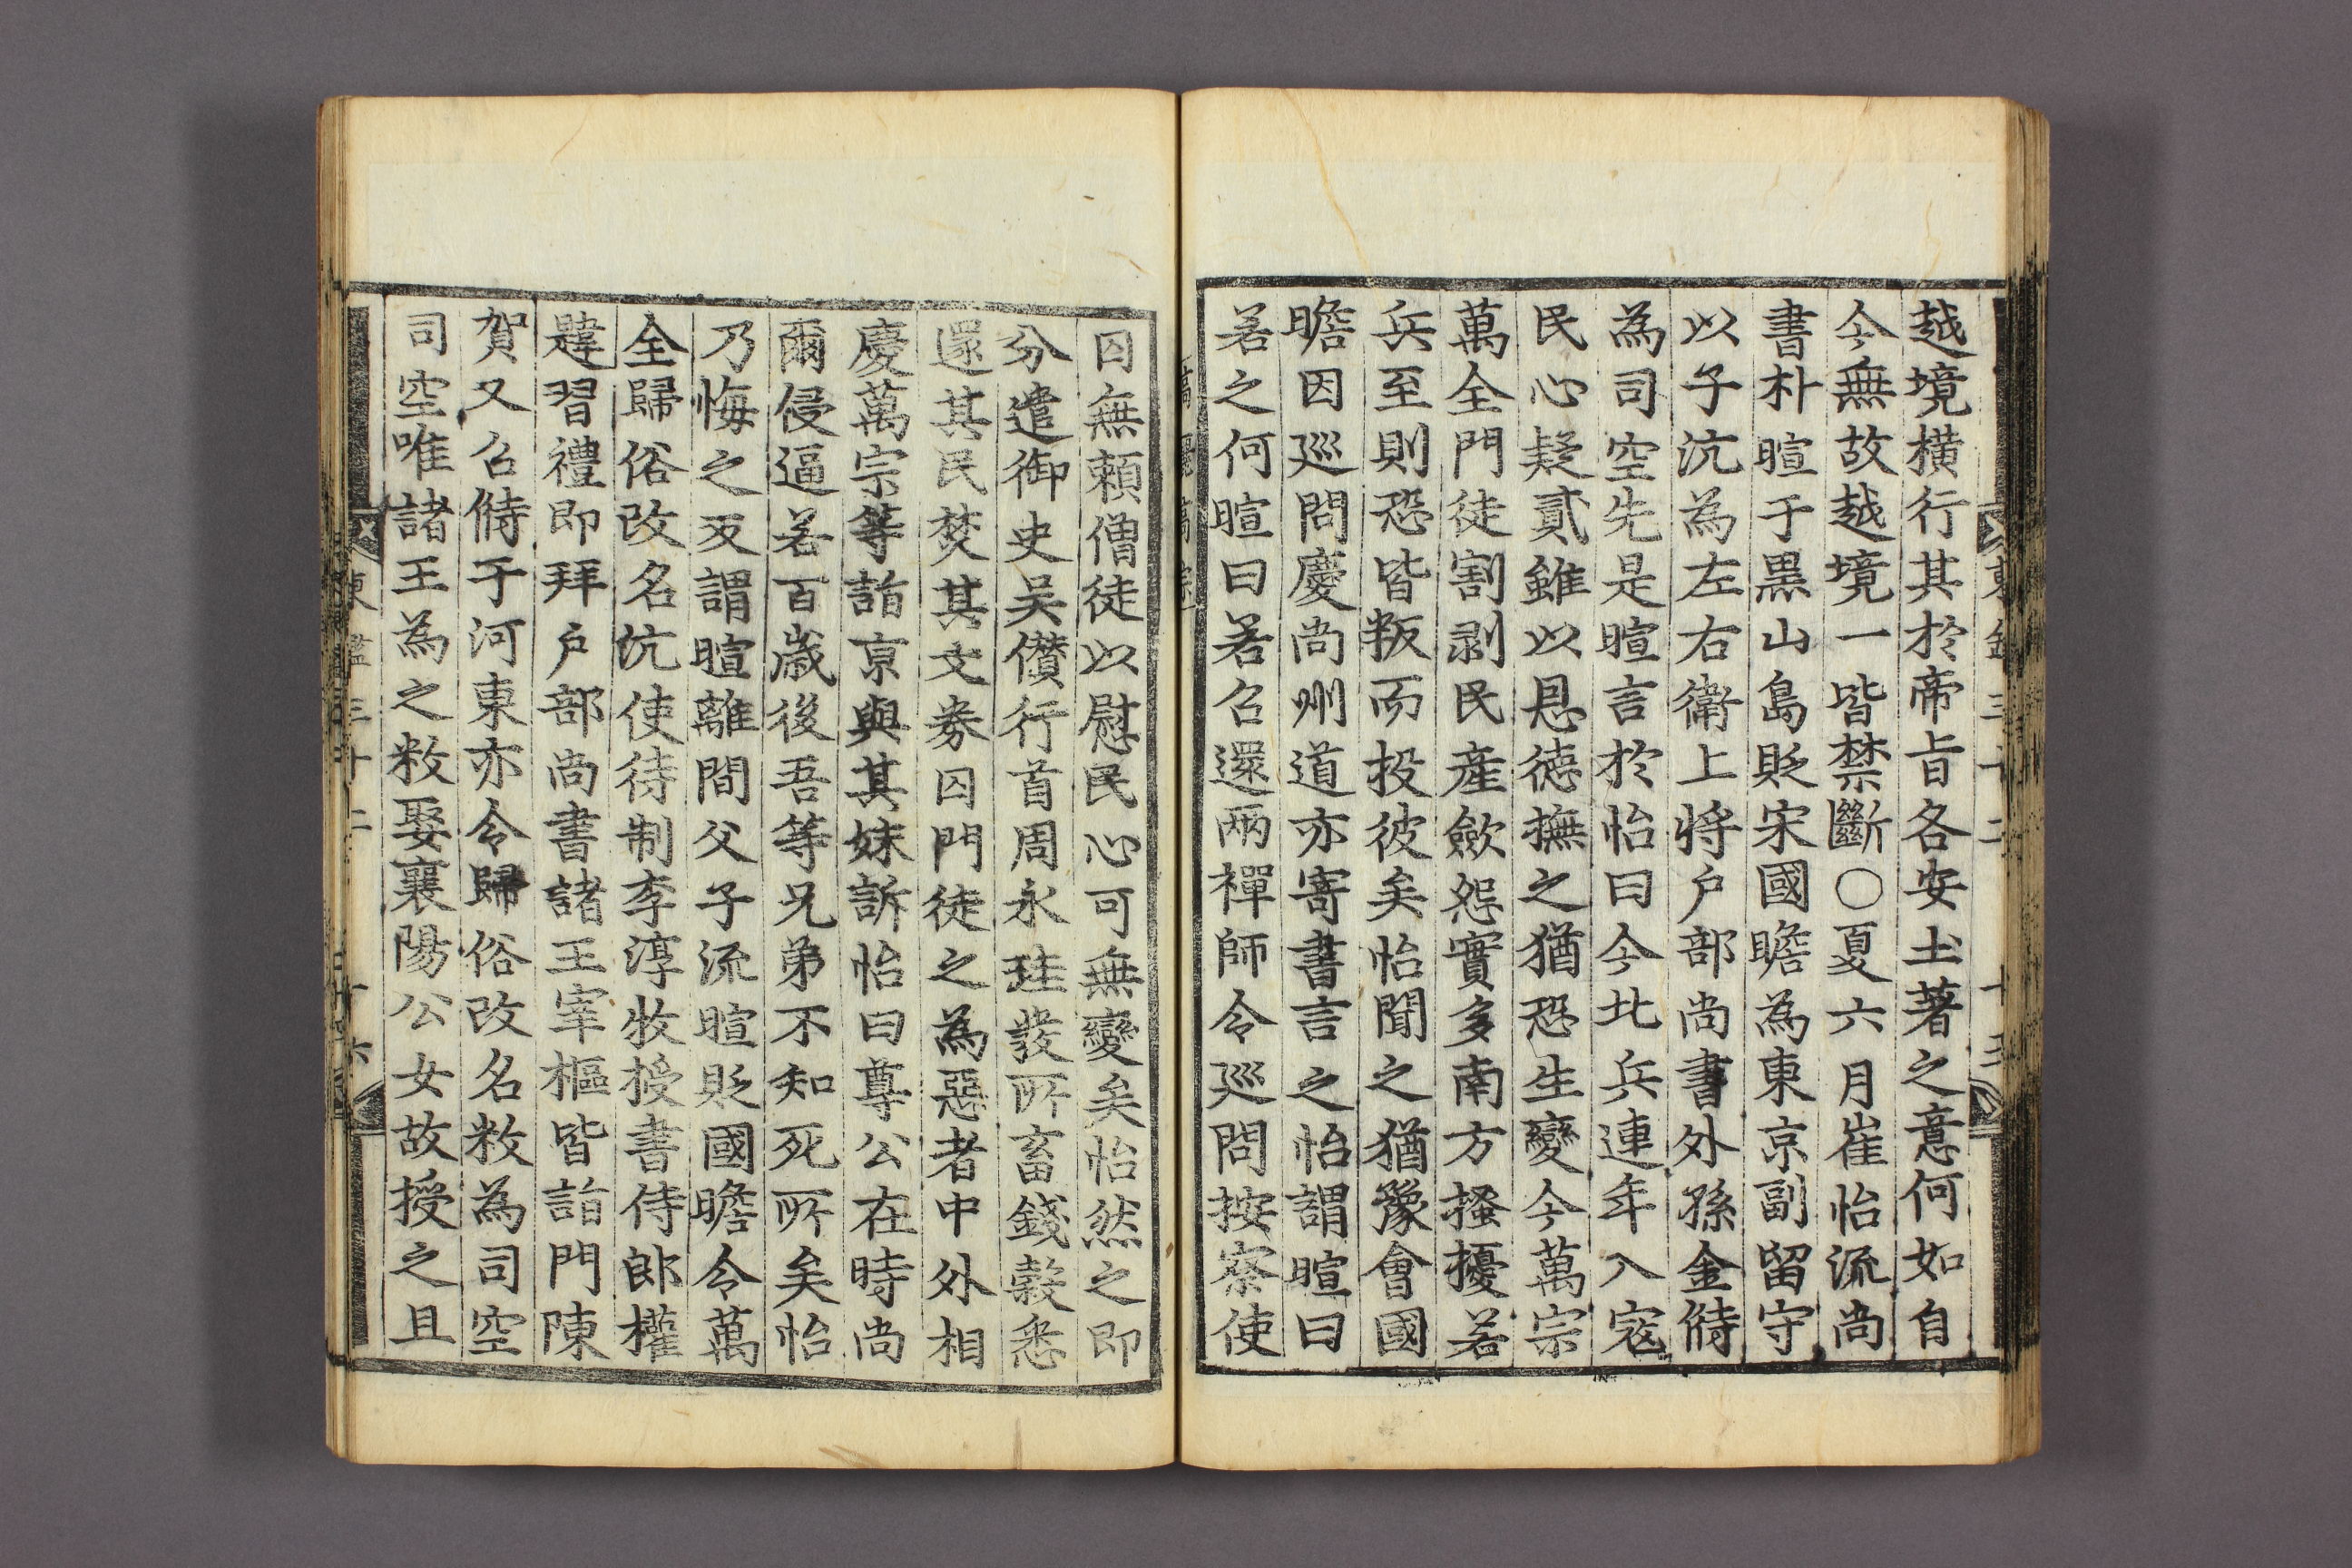 越境橫行其於帝旨各安土著之意何如自
今無故越境一皆禁斷〇夏六月崔怡流尚
書朴暄于黑山島貶宋國瞻為東京副留守
以子沆為左右衛上將戶部尚書外孫金偫
為司空先是暄言於怡曰今北兵連年入寇
民心疑貳雖以恩德撫之猶恐生變今萬宗
萬全門徒割剥民産斂怨實多南方搔擾若
兵至則恐皆叛而投彼矣怡聞之猶豫會國
瞻因巡問慶尚州道亦寄書言之怡謂暄曰
若之何暄曰若召還兩禪師令巡問按察使
囚無賴僧徒以慰民心可無變矣怡然之即
分遣御史吳儹行首周永珪發所畜錢穀悉
還其民焚其文券囚門徒之為惡者中外相
慶萬宗等詣京與其妹訴怡曰尊公在時尚
爾侵逼若百歲後吾等兄弟不知死所矣怡
乃悔之反謂暄離間父子流暄貶國瞻令萬
全歸俗改名沆使待制李淳牧授書侍郎權
韙習禮即拜戶部尚書諸王宰樞皆詣門陳
賀又召偫于河東亦令歸俗改名敉為司空
司空唯諸王為之敉娶襄陽公女故授之且
東鑑三十二 十六